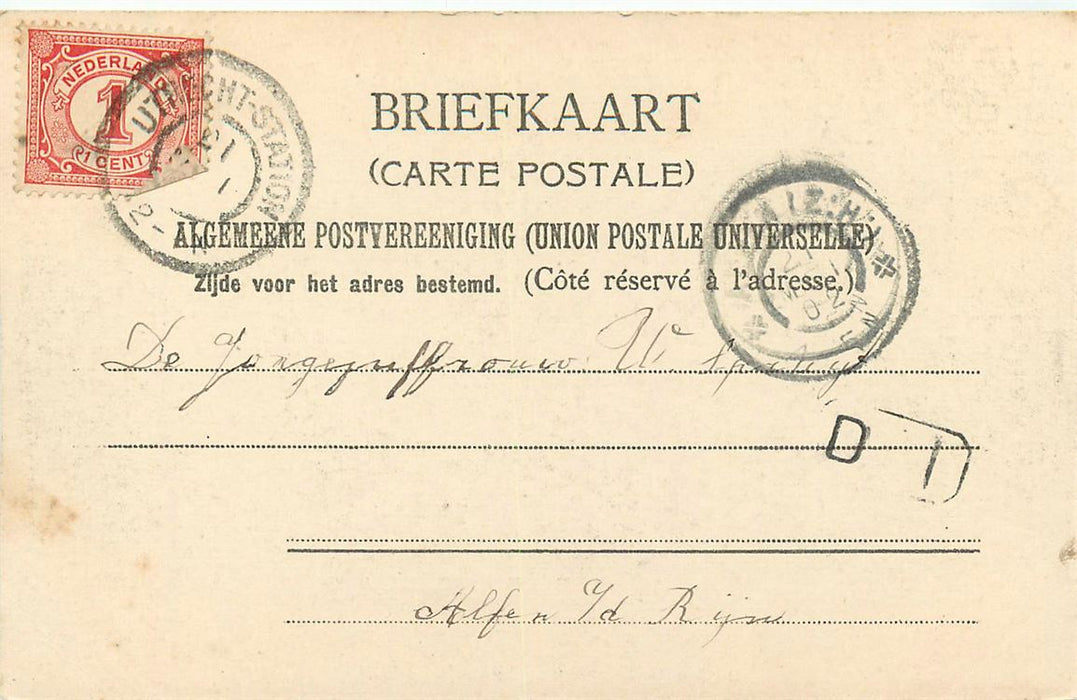 NEDERLAND
1
1 CENT
UTRECHT-STATION
BRIEFKAART
(CARTE POSTALE)
ALGEMEENE POSTVEREENIGING (UNION POSTALE UNIVERSELLE)
Zijde voor het adres bestemd. (Côté réservé à l'adresse.)
De Jongejuffrouw
D
Alfen a/d Rijn